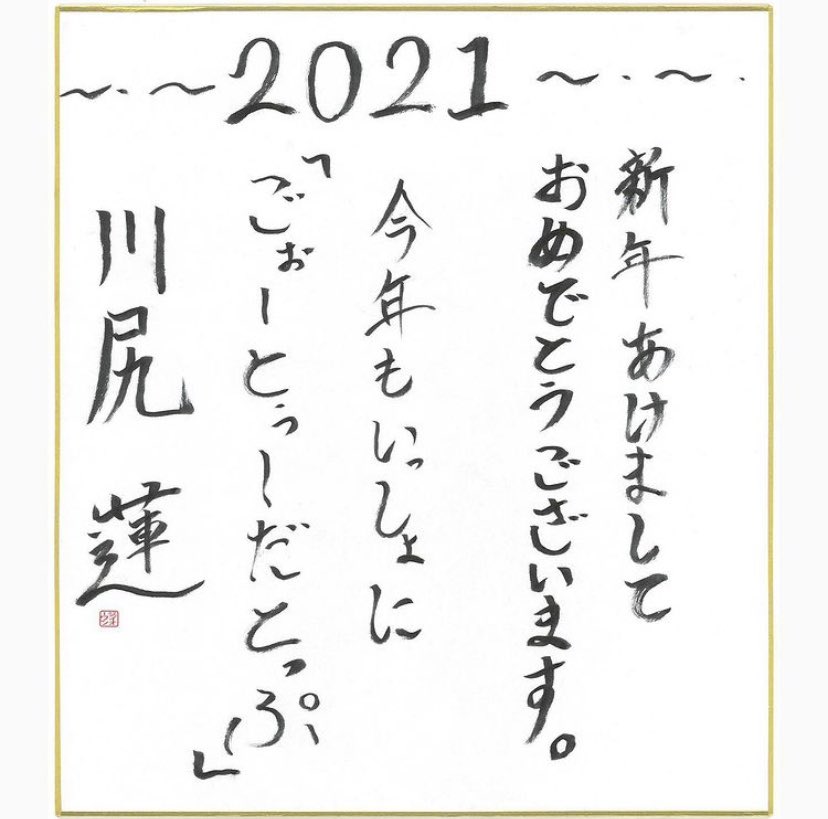 〜・〜2021〜・〜・
新年あけまして
おめでとうございます。
今年もいっしょに
「ごぉーとぅーだとっぷ」
川尻 蓮